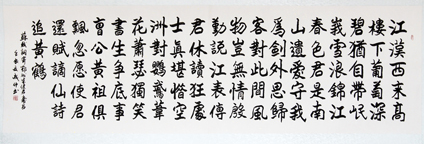 江漢西來高
樓下葡萄深
碧猶自帶岷
峩雪浪錦江
春色君是南
山遺愛守我
為劍外思歸
客對此間風
物豈無情殷
勤說江表傳
君休讀狂處
士真堪惜空
洲對鸚鵡葦
花蕭瑟獨笑
書生爭底事
曹公黃祖俱
飄忽願使君
還賦謫仙詩
追黃鶴